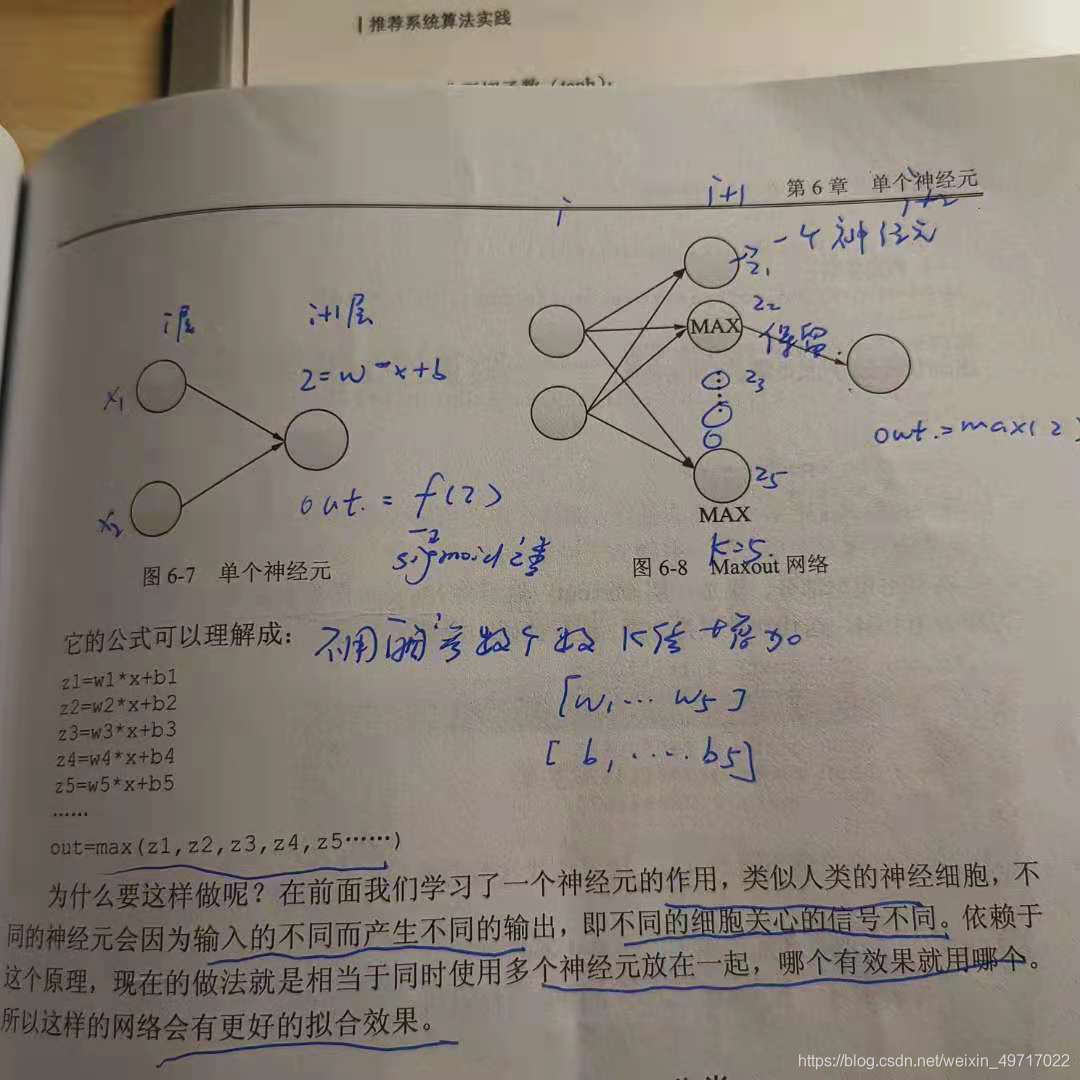 推荐系统算法实践
第6章 单个神经元
i
i+1
i+2
z1
一个神经元
i层
i+1层
z2
MAX
保留
x1
z3
out.=max(z)
x2
out. = f(z)
z5
MAX
sigmoid
K=5.
图 6-7 单个神经元
图 6-8 Maxout 网络
它的公式可以理解成:
不用 参数个数 K倍增加
z1=w1*x+b1
z2=w2*x+b2
z3=w3*x+b3
z4=w4*x+b4
z5=w5*x+b5
……
[w1 … w5]
[b1, …. b5]
out=max(z1,z2,z3,z4,z5……)
为什么要这样做呢?在前面我们学习了一个神经元的作用,类似人类的神经细胞,不
同的神经元会因为输入的不同而产生不同的输出,即不同的细胞关心的信号不同。依赖于
这个原理,现在的做法就是相当于同时使用多个神经元放在一起,哪个有效果就用哪个。
所以这样的网络会有更好的拟合效果。
https://blog.csdn.net/weixin_49717022